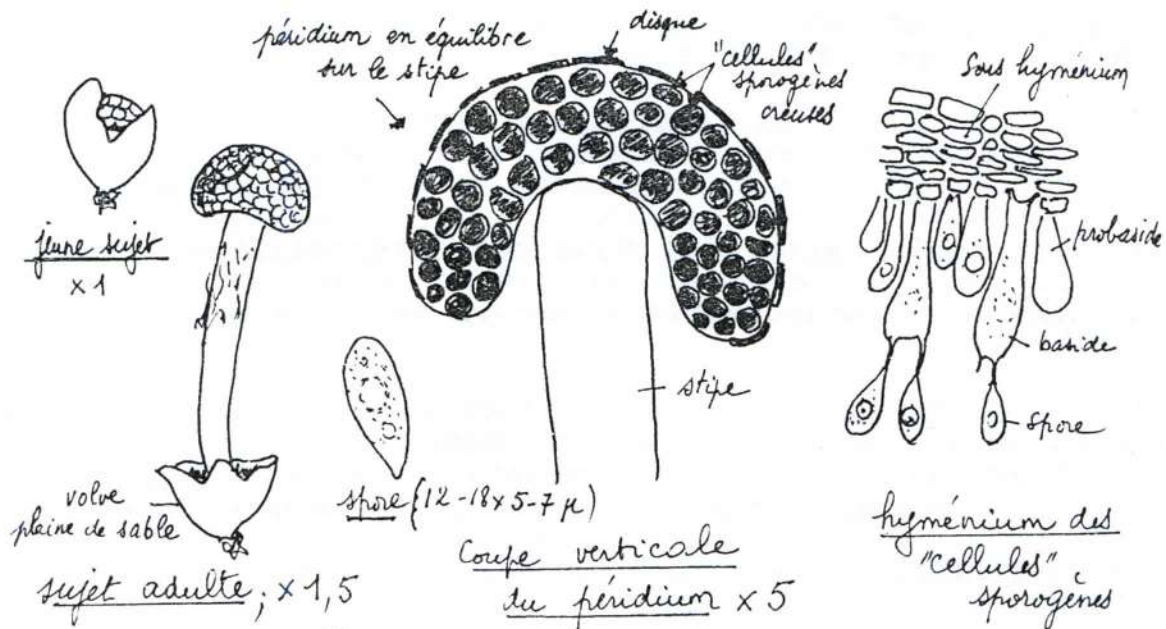 péridium en équilibre
sur le stipe
disque
"cellules"
sporogènes
creuses
sous hyménium
jeune sujet
x 1
probaside
baside
stipe
spore
volve
pleine de sable
spore (12-18 x 5-7 µ)
sujet adulte; x 1,5
Coupe verticale
du péridium x 5
hyménium des
"cellules"
sporogènes